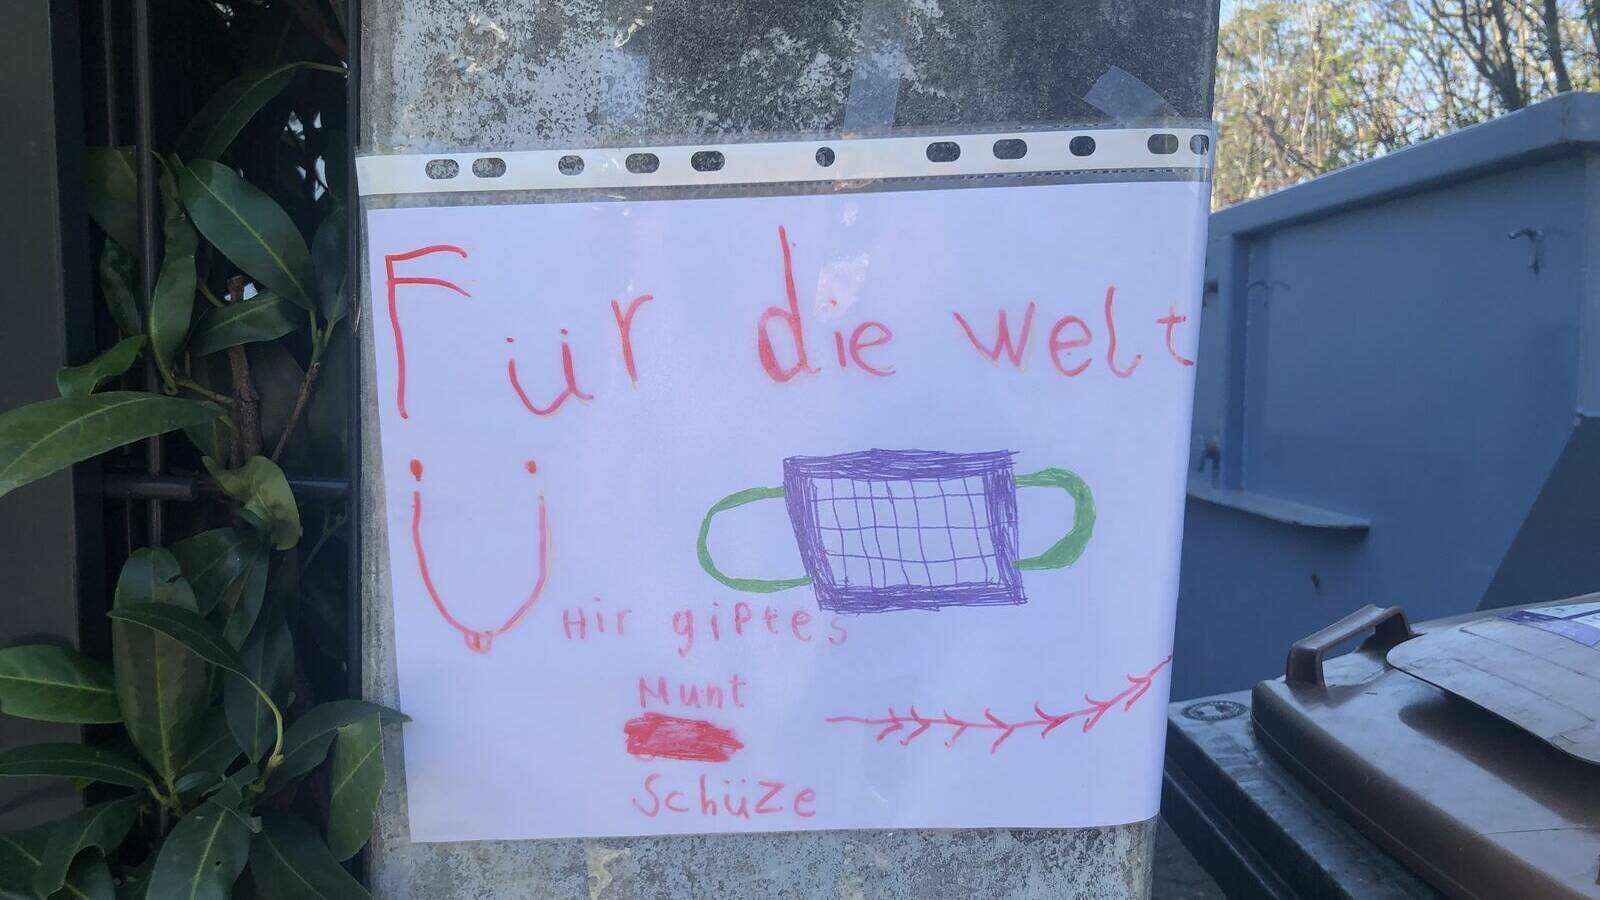 Für die welt
Ü
Hir giptes
Munt
Schüze